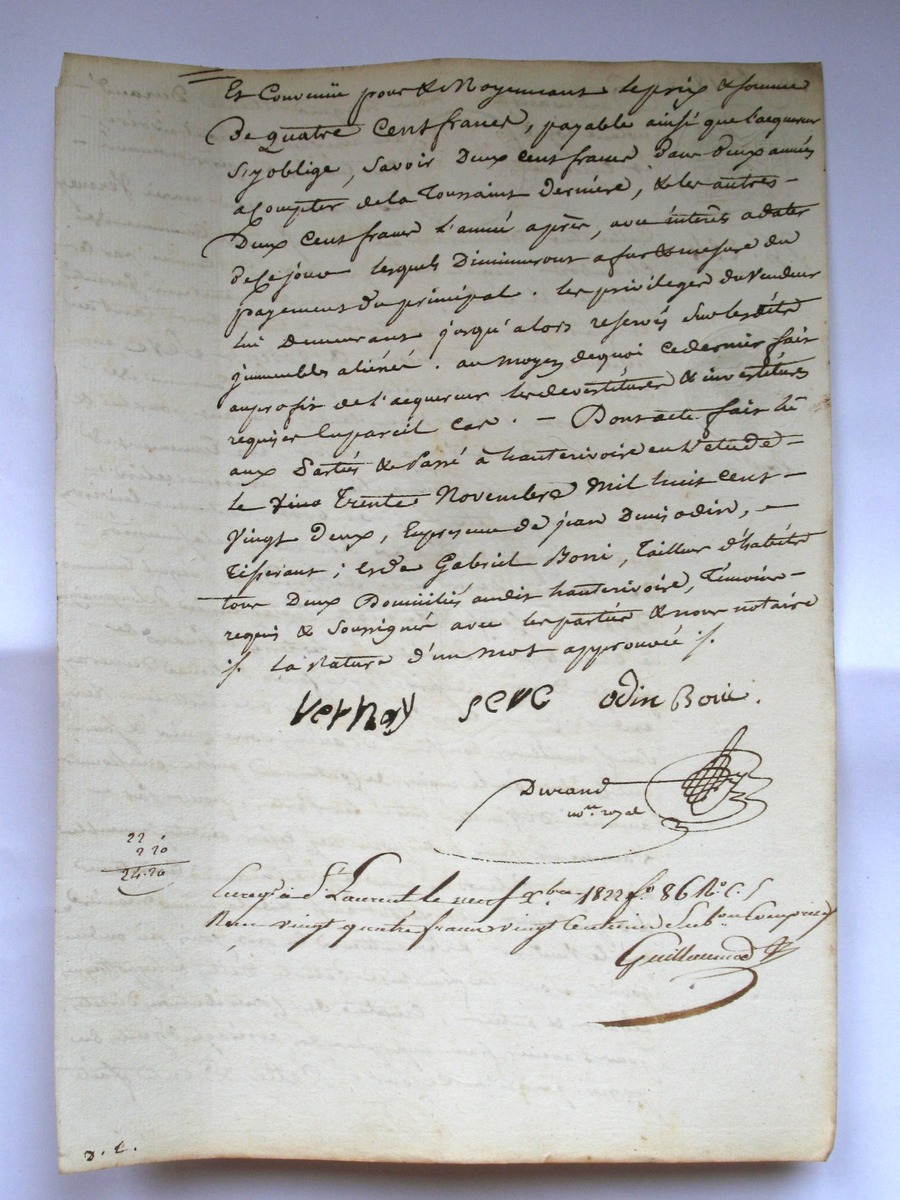 Et Convenüe pour & Moyennant le prix & somme
De quatre Cent francs, payable ainsi que l'acquereur
S'y oblige, Savoir Deux cent francs dans Deux années
a Compter de la Toussaint Dernière, & les autres -
Deux Cent francs l'année après, avec intérêts a dater
de ce jour lesquels Diminueront a fur & mesure du
payement du principal. les privileges du Vendeur
lui Demeurant jusqu'alors reservés Sur les dits
immeubles aliénés. au moyen de quoi ce dernier fait
au profit de l'acquereur les devestitures & investitures
requises En pareil cas. - Dont acte fait lû
aux Parties & Passé à hauterivoire en l'etude -
le Trente Novembre Mil huit cent -
Vingt Deux, En presence de jean Denis odin, -
Tisserant; & de Gabriel Boni, Tailleur d'habits
tous Deux Domiciliés audit hauterivoire, Témoins -
requis & Soussignés avec les parties & nous notaire
./. la Rature d'un mot approuvée ./.
Vernay Seve odin Boni.
Durand
nre royal
22
2 20
24.20
Enregé à St Laurent le neuf Xbre 1822 fo 86 Ro C. 5
Reçu vingt quatre francs vingt Centimes Subon Comprise
Guillaumod
D. L.